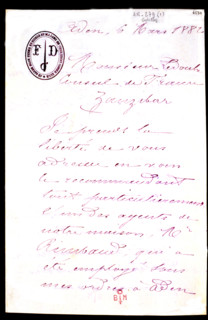 Aden, 6 Mars 188
Monsieur Ledoulx
Consul de France
Zanzibar
Je prends la
liberté de vous
adresser en vous
le recommandant
tout particulièrement
l'un des agents de
notre maison, Mr
Rimbaud, qui a
été employé sous
mes ordres à Aden
F D